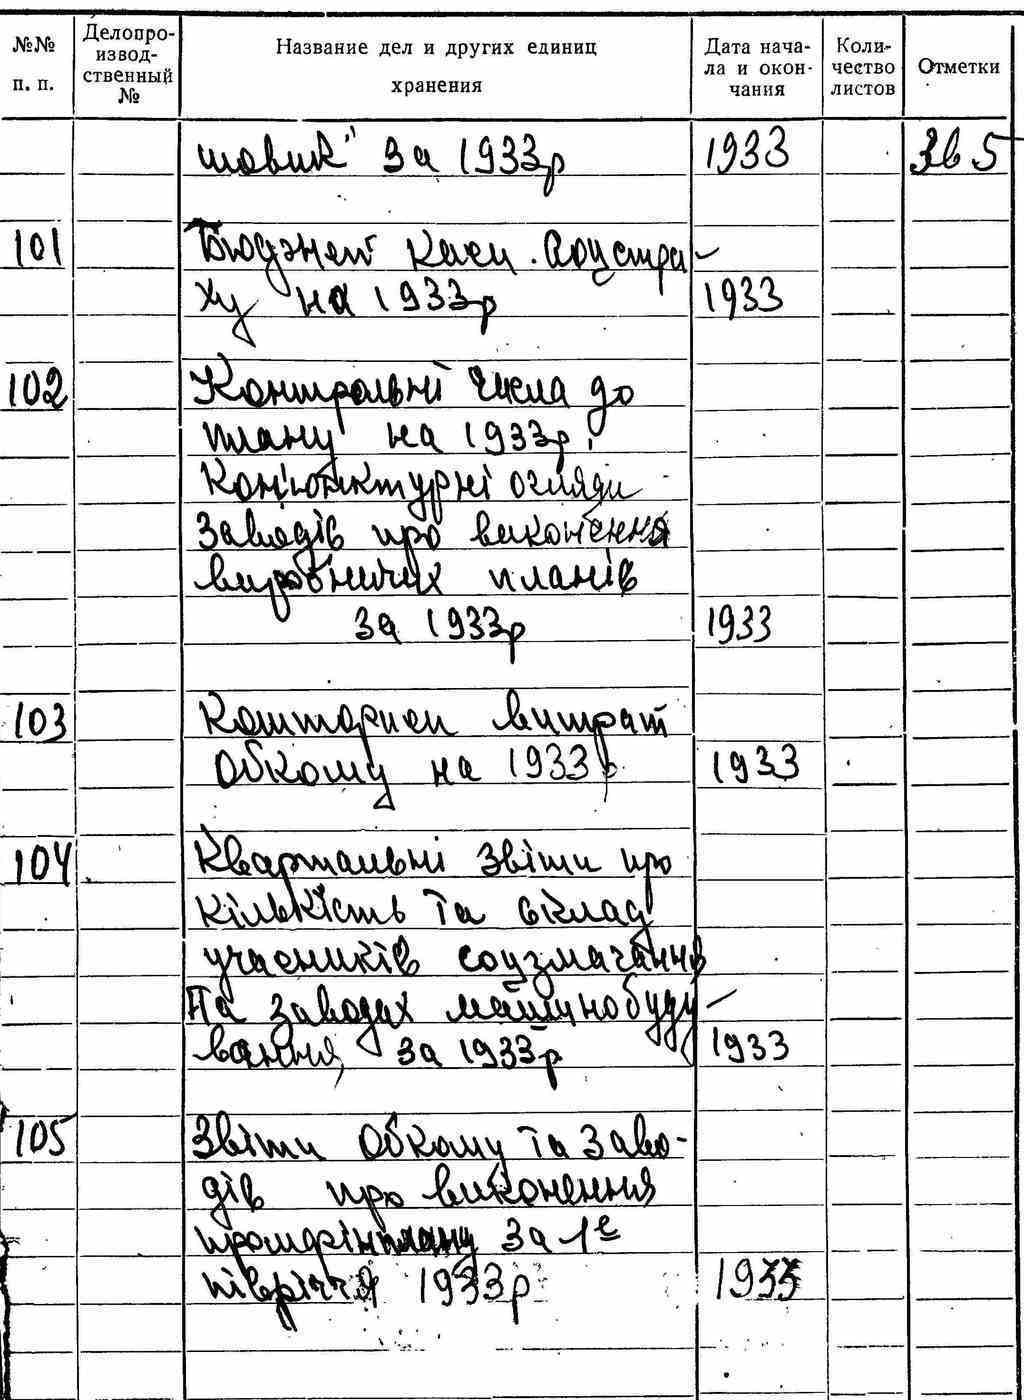 №№ п. п.
Делопро-
извод-
ственный
№
Название дел и других единиц
хранения
Дата нача-
ла и окон-
чания
Коли-
чество
листов
Отметки
шовик" за 1933р 1933 Зв 5
101 Бюджет Каси Соцстра-
ху на 1933р 1933
102 Контрольні числа до
плану на 1933р,
Кон'юнктурні огляди
Заводів про виконення
виробничих планів
за 1933р 1933
103 Кошториси витрат
Обкому на 1933р 1933
104 Квартальні звіти про
кількість та склад
учасників соцзмагання
На заводах машинобуду-
вання, за 1933р 1933
105 Звіти Обкому та Заво-
дів про виконення
промфінплану за 1е
півріччя 1933р 1933